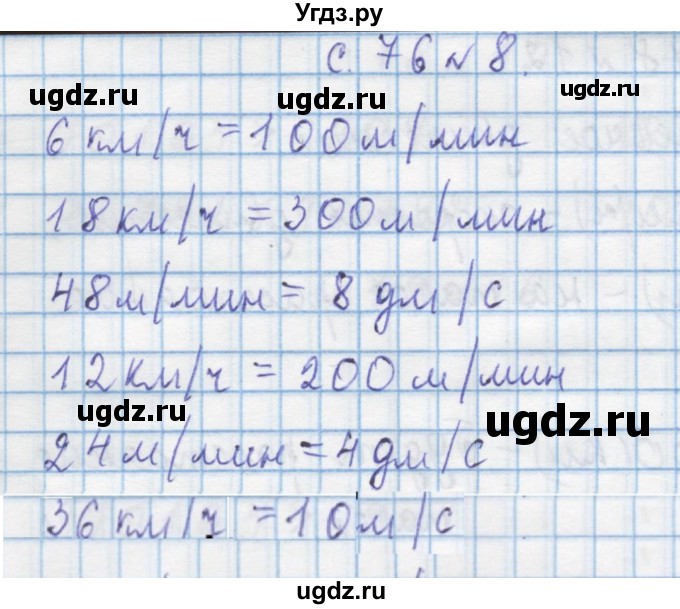 Угдз.ру
с. 76 № 8.
ugdz.ru ugdz.ru ugdz.ru
6 км/ч = 100 м/мин
18 км/ч = 300 м/мин
48 м/мин = 8 дм/с
12 км/ч = 200 м/мин
ugdz.ru ugdz.ru
24 м/мин = 4 дм/с
36 км/ч = 10 м/с
ugdz.ru